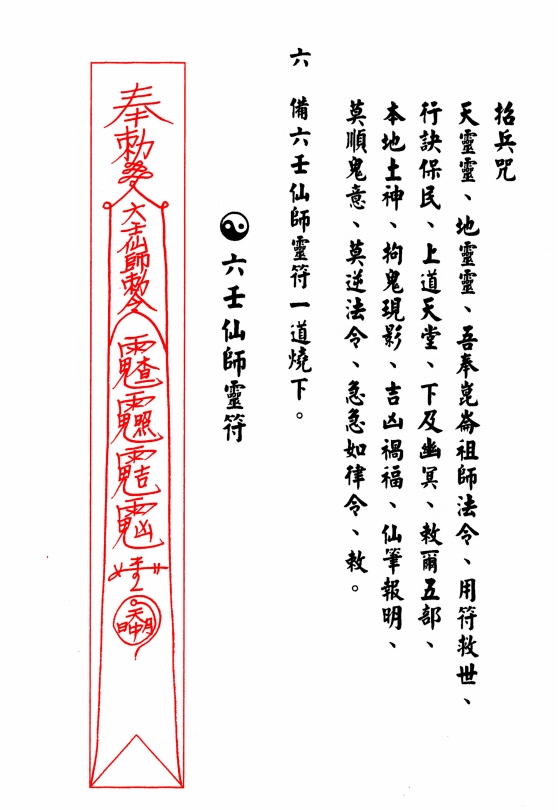 招兵咒
天靈靈、地靈靈、吾奉崑崙祖師法令、用符救世、
行訣保民、上道天堂、下及幽冥、敕爾五部、
本地土神、拘鬼現影、吉凶禍福、仙筆報明、
莫順鬼意、莫逆法令、急急如律令、敕。
六　備六壬仙師靈符一道燒下。
六壬仙師靈符
奉勅
六壬仙師勅令